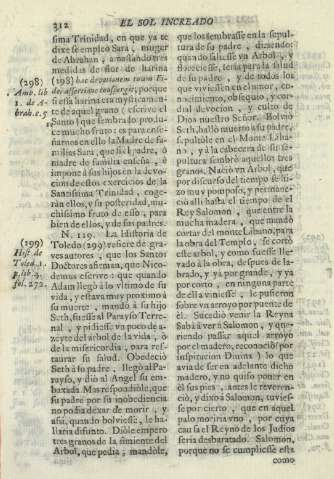 312 EL SOL INCREADO
sima Trinidad, en que ya te
dixe se empleò Sara, muger
de Abrahan, amassando tres
medidas de flor de harina
(298)
(298) hac devotionem tuam Fi-
Amb. lib
dei assertione consperges; porque
1. de A-
si essa harina era mysteriosa an-
brah. c. 5
te de aquel grano (escrive el
Santo) que sembrada produ-
ce mucho fruto: es para ense-
ñarnos en ello la Madre de fa-
milias Sara, que si el padre, ò
madre de familia enseña, è
impone à sus hijos en la devo-
cion destos exercicios de la
Santissima Trinidad, coge-
ràn ellos, y su posteridad, mu-
chissimo fruto de esso, para
bien de ellos, y de sus padres.
N. 129. La Historia de
(199)
Toledo (299) refiere de gra-
Hist. de
ves autores, que los Santos
Toled. 1.
Doctores afirman, que Nico-
p. lib. 9.
demus escrive: que quando
fol. 272.
Adam llegò à lo ultimo de su
vida, y estava muy proximo à
su muerte, mandò à su hijo
Seth, fuesse al Parayso Terre-
nal, y pidiesse vn poco de a-
zeyte del arbol de la vida, ò
de la misericordia, para res-
taurar su salud. Obedeciò
Seth à su padre, llegò al Pa-
rayso, y diò al Angel su em-
baxada. Mas respondiòle, que
su padre por su inobediencia
no podia dexar de morir, y
assi, quando bolviesse, le ha-
llaria difunto. Diòle empero
tres granos de la simiente del
Arbol, que pedia; mandòle,
que los sembrasse en la sepul-
tura de su padre, diziendo:
quando saliesse vn Arbol, y
floreciesse, seria para la salud
de su padre, y de todos los
que viviessen en el amor, co-
nocimiento, obsequio, y cor-
dial devocion, y culto de
Dios nuestro Señor. Bolviò
Seth, hallò muerto à su padre,
sepultòle en el Monte Liba-
no, y à la cabecera de su se-
pultura sembrò aquellos tres
granos. Naciò vn Arbol, que
por discurso del tiempo se hi-
zo muy pomposo, y permane-
ciò alli hasta el tiempo de el
Rey Salomon, que entre la
mucha madera, que mandò
cortar del monte Libano, para
la obra del Templo, se cortò
este arbol, y como fuesse lle-
vado à la obra, despues de la-
brado, y à por grande, y ya
por corto, en ninguna parte
de ella viniesse, le pusieron
sobre vn arroyo por puente de
èl. Sucediò venir la Reyna
Sabà à ver à Salomon, y que-
riendo passar aquel arroyo
por el madero, reconociò (por
inspiracion Divina) lo que
avia de ser en adelante dicho
madero, y no quiso poner en
èl sus pies, antes le reveren-
ciò, y dixo à Salomon, tuvies-
se por cierto, que en aquel
palo moriria vno, por cuya
causa el Reyno de los Judios
seria desbaratado. Salomon,
porque no se cumpliesse esta
como